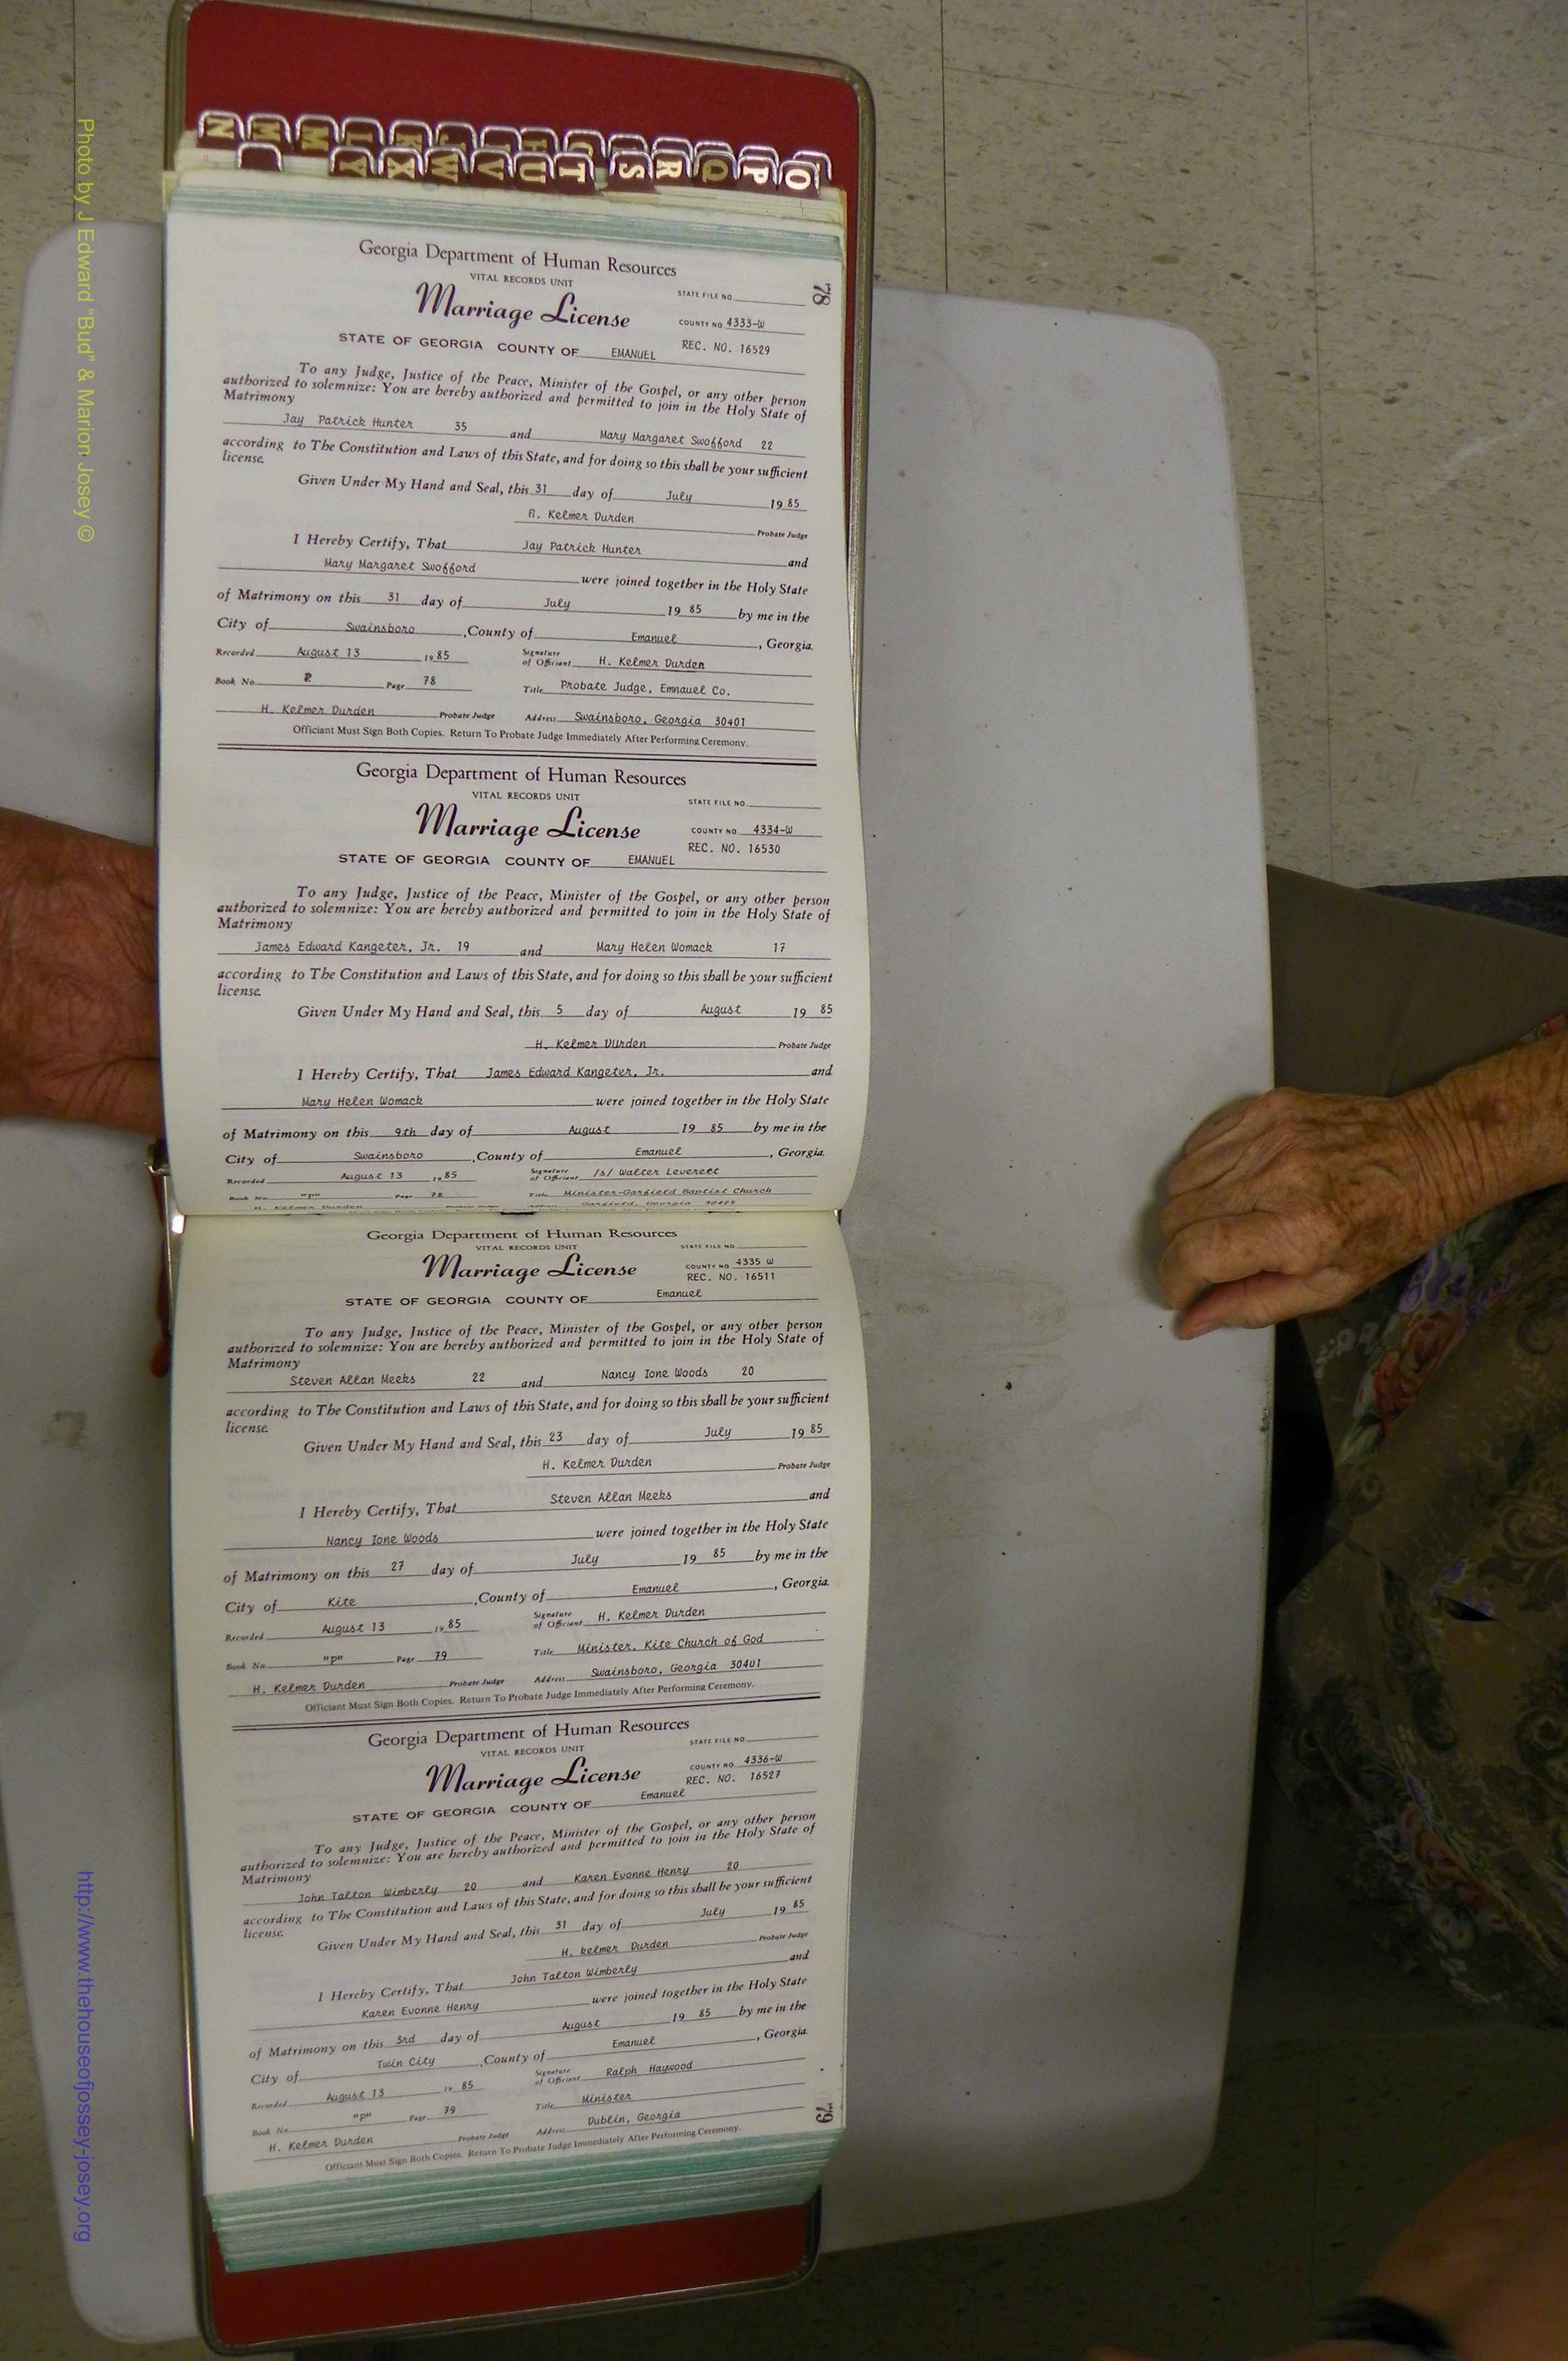 N M M L K J I H G S R Q P O
Y X W V U T
Georgia Department of Human Resources
78
VITAL RECORDS UNIT
STATE FILE NO.
Marriage License
COUNTY NO. 4333-W
STATE OF GEORGIA COUNTY OF EMANUEL
REC. NO. 16529
To any Judge, Justice of the Peace, Minister of the Gospel, or any other person
authorized to solemnize: You are hereby authorized and permitted to join in the Holy State of
Matrimony
Jay Patrick Hunter 35 and Mary Margaret Swofford 22
according to The Constitution and Laws of this State, and for doing so this shall be your sufficient
license.
Given Under My Hand and Seal, this 31 day of July 19 85
H. Kelmer Durden Probate Judge
I Hereby Certify, That Jay Patrick Hunter and
Mary Margaret Swofford were joined together in the Holy State
of Matrimony on this 31 day of July 19 85 by me in the
City of Swainsboro, County of Emanuel, Georgia.
Recorded August 13 19 85 Signature of Officiant H. Kelmer Durden
Book No. P Page 78 Title Probate Judge, Emnauel Co.
H. Kelmer Durden Probate Judge Address Swainsboro, Georgia 30401
Officiant Must Sign Both Copies. Return To Probate Judge Immediately After Performing Ceremony.
Georgia Department of Human Resources
VITAL RECORDS UNIT
STATE FILE NO.
Marriage License
COUNTY NO. 4334-W
REC. NO. 16530
STATE OF GEORGIA COUNTY OF EMANUEL
To any Judge, Justice of the Peace, Minister of the Gospel, or any other person
authorized to solemnize: You are hereby authorized and permitted to join in the Holy State of
Matrimony
James Edward Kangeter, Jr. 19 and Mary Helen Womack 17
according to The Constitution and Laws of this State, and for doing so this shall be your sufficient
license.
Given Under My Hand and Seal, this 5 day of August 19 85
H. Kelmer DUrden Probate Judge
I Hereby Certify, That James Edward Kangeter, Jr. and
Mary Helen Womack were joined together in the Holy State
of Matrimony on this 9th day of August 19 85 by me in the
City of Swainsboro, County of Emanuel, Georgia.
Recorded August 13 19 85 Signature of Officiant /s/ Walter Leverett
Book No. "p" Page 78 Title Minister-Garfield Baptist Church
H. Kelmer Durden Probate Judge Address Garfield, Georgia 30425
Georgia Department of Human Resources
VITAL RECORDS UNIT
STATE FILE NO.
Marriage License
COUNTY NO. 4335 W
REC. NO. 16511
STATE OF GEORGIA COUNTY OF Emanuel
To any Judge, Justice of the Peace, Minister of the Gospel, or any other person
authorized to solemnize: You are hereby authorized and permitted to join in the Holy State of
Matrimony
Steven Allan Meeks 22 and Nancy Ione Woods 20
according to The Constitution and Laws of this State, and for doing so this shall be your sufficient
license.
Given Under My Hand and Seal, this 23 day of July 19 85
H. Kelmer Durden Probate Judge
I Hereby Certify, That Steven Allan Meeks and
Nancy Ione Woods were joined together in the Holy State
of Matrimony on this 27 day of July 19 85 by me in the
City of Kite, County of Emanuel, Georgia.
Recorded August 13 19 85 Signature of Officiant H. Kelmer Durden
Book No. "p" Page 79 Title Minister. Kite Church of God
H. Kelmer Durden Probate Judge Address Swainsboro, Georgia 30401
Officiant Must Sign Both Copies. Return To Probate Judge Immediately After Performing Ceremony.
Georgia Department of Human Resources
VITAL RECORDS UNIT
STATE FILE NO.
Marriage License
COUNTY NO. 4336-W
REC. NO. 16527
STATE OF GEORGIA COUNTY OF Emanuel
To any Judge, Justice of the Peace, Minister of the Gospel, or any other person
authorized to solemnize: You are hereby authorized and permitted to join in the Holy State of
Matrimony
John Talton Wimberly 20 and Karen Evonne Henry 20
according to The Constitution and Laws of this State, and for doing so this shall be your sufficient
license.
Given Under My Hand and Seal, this 31 day of July 19 85
H. kelmer Durden Probate Judge
I Hereby Certify, That John Talton Wimberly and
Karen Evonne Henry were joined together in the Holy State
of Matrimony on this 3rd day of August 19 85 by me in the
City of Twin City, County of Emanuel, Georgia.
Recorded August 13 19 85 Signature of Officiant Ralph Haywood
Book No. "p" Page 79 Title Minister
H. Kelmer Durden Probate Judge Address Dublin, Georgia
Officiant Must Sign Both Copies. Return To Probate Judge Immediately After Performing Ceremony.
79
Photo by J Edward "Bud" & Marion Josey ©
http://www.thehouseofjossey-josey.org